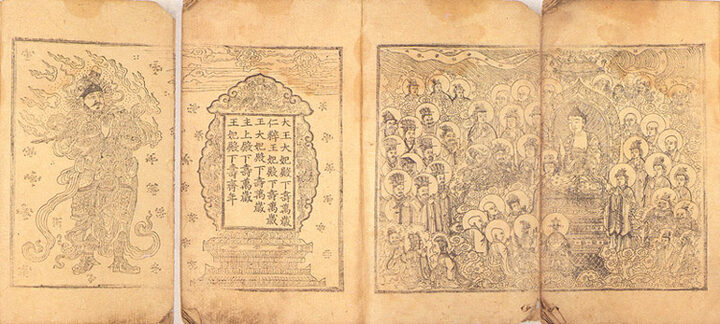 大王大妃殿下壽萬歲
仁粹王妃殿下壽萬歲
王大妃殿下壽萬歲
主上殿下壽萬歲
王妃殿下壽齊年